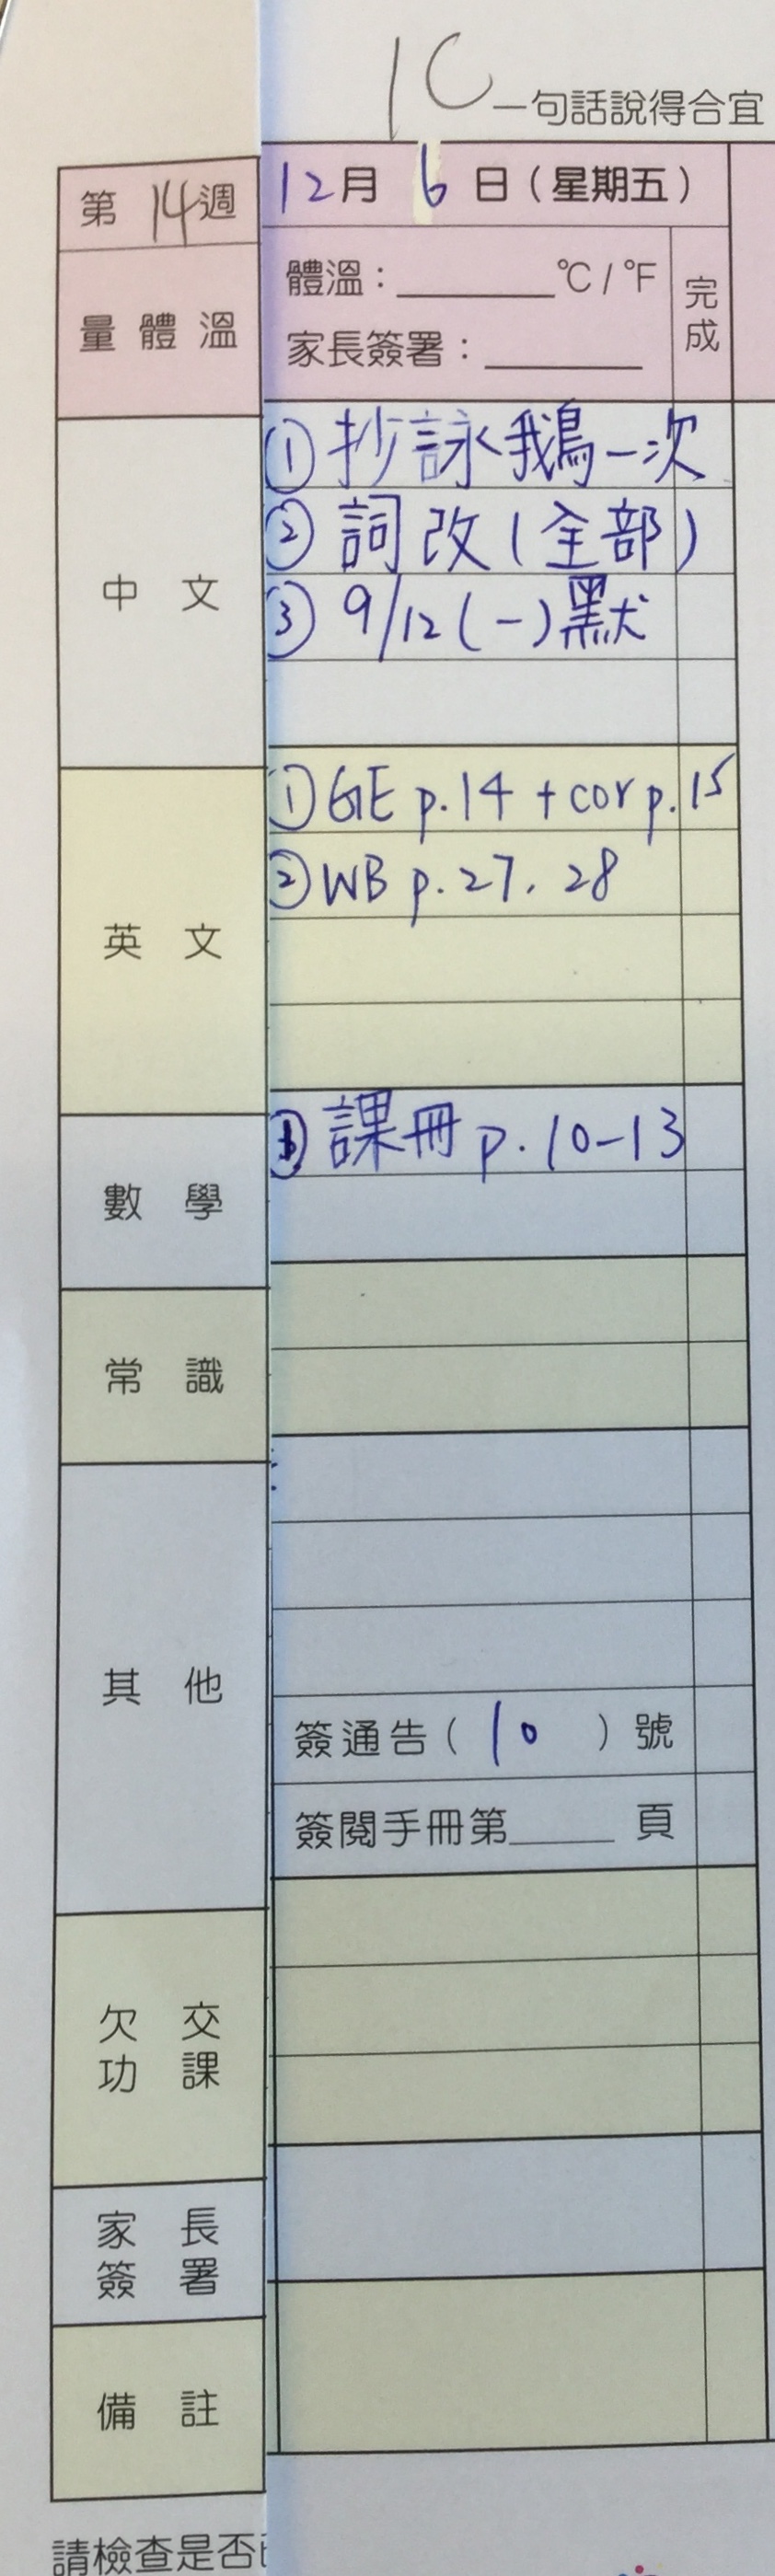 1C
一句話說得合宜
第 14 週
12 月 6 日 ( 星期五 )
量體溫
體溫：______°C / °F
家長簽署：______
完成
中文
① 抄詠鵝一次
② 詞改 (全部)
③ 9/12 (一) 默
英文
① GE p.14 + cor p.15
② WB p.27, 28
數學
① 課冊 p.10-13
常識
其他
簽通告 ( 10 ) 號
簽閱手冊第______頁
欠交
功課
家長
簽署
備註
請檢查是否